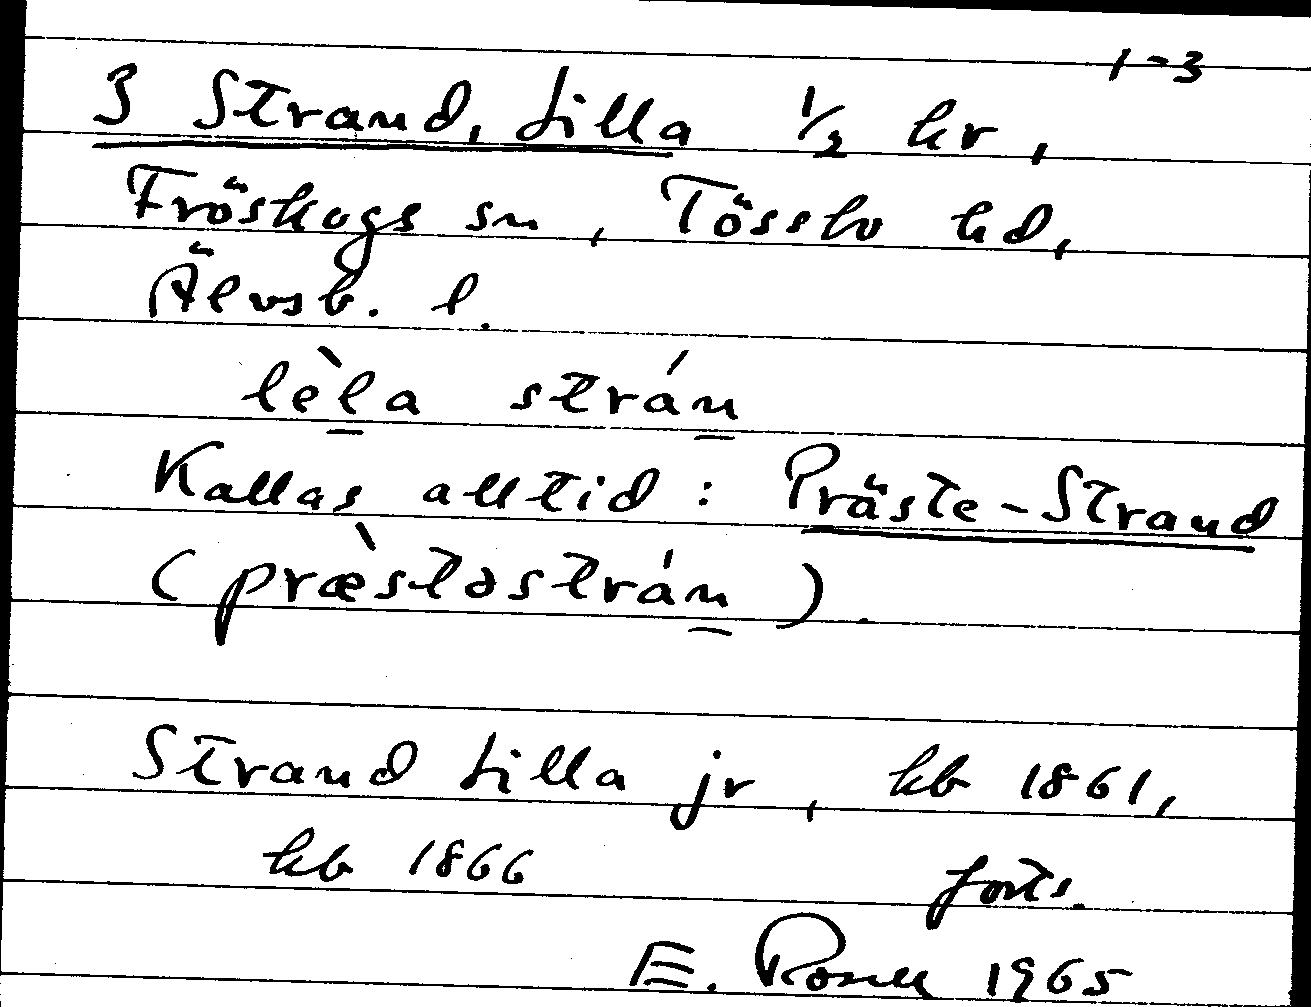 1-3
3 Strand, Lilla 1/2 hr,
Fröskogs sn, Tössbo hd,
Älvsb. l.
lèla strán
Kallas alltid: Präste-Strand
(præ̀stəstrán).
Strand Lilla jr, hb 1861,
hb 1866 forts.
E. Rosell 1965